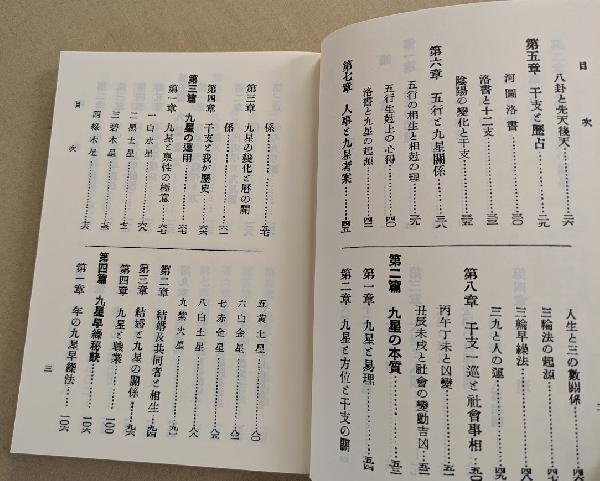 目次
八卦と先天後天……二六
第五章 干支と歷占……二九
河圖洛書……三〇
洛書と十二支……三三
陰陽の變化と干支……三五
第六章 五行と九星關係……三八
五行の相生と相尅の理……三九
五行生尅上の心得……四〇
洛書と九星の起源……四二
第七章 人事と九星考案……四五
人生と三の數關係……四六
三輪法の起源……四七
三輪早繰法……四八
三九と人の運……四九
第八章 干支一巡と社會事相……五〇
丙午丁未と凶變……五一
丑辰未戌と社會の變動吉凶……五二
第二篇 九星の本質……五三
第一章 九星と易理……五四
第二章 九星と方位と干支の關
二
係……五七
第三章 九星の變化と曆の關
係……六一
第四章 干支と我が歷史……六六
第三篇 九星の運用……六七
第一章 九星と裏性の極意……六七
一白水星……六八
二黑土星……七一
三碧木星……七三
四綠木星……七六
目次
五黃土星……八〇
六白金星……八三
七赤金星……八六
八白土星……八八
九紫火星……九一
第二章 結婚及共同者と相生……九四
第三章 結婚と九星の關係……九六
第四章 九星と職業……一〇〇
第四篇 九星早繰秘訣……一〇六
第一章 年の九星早繰法……一〇六
三